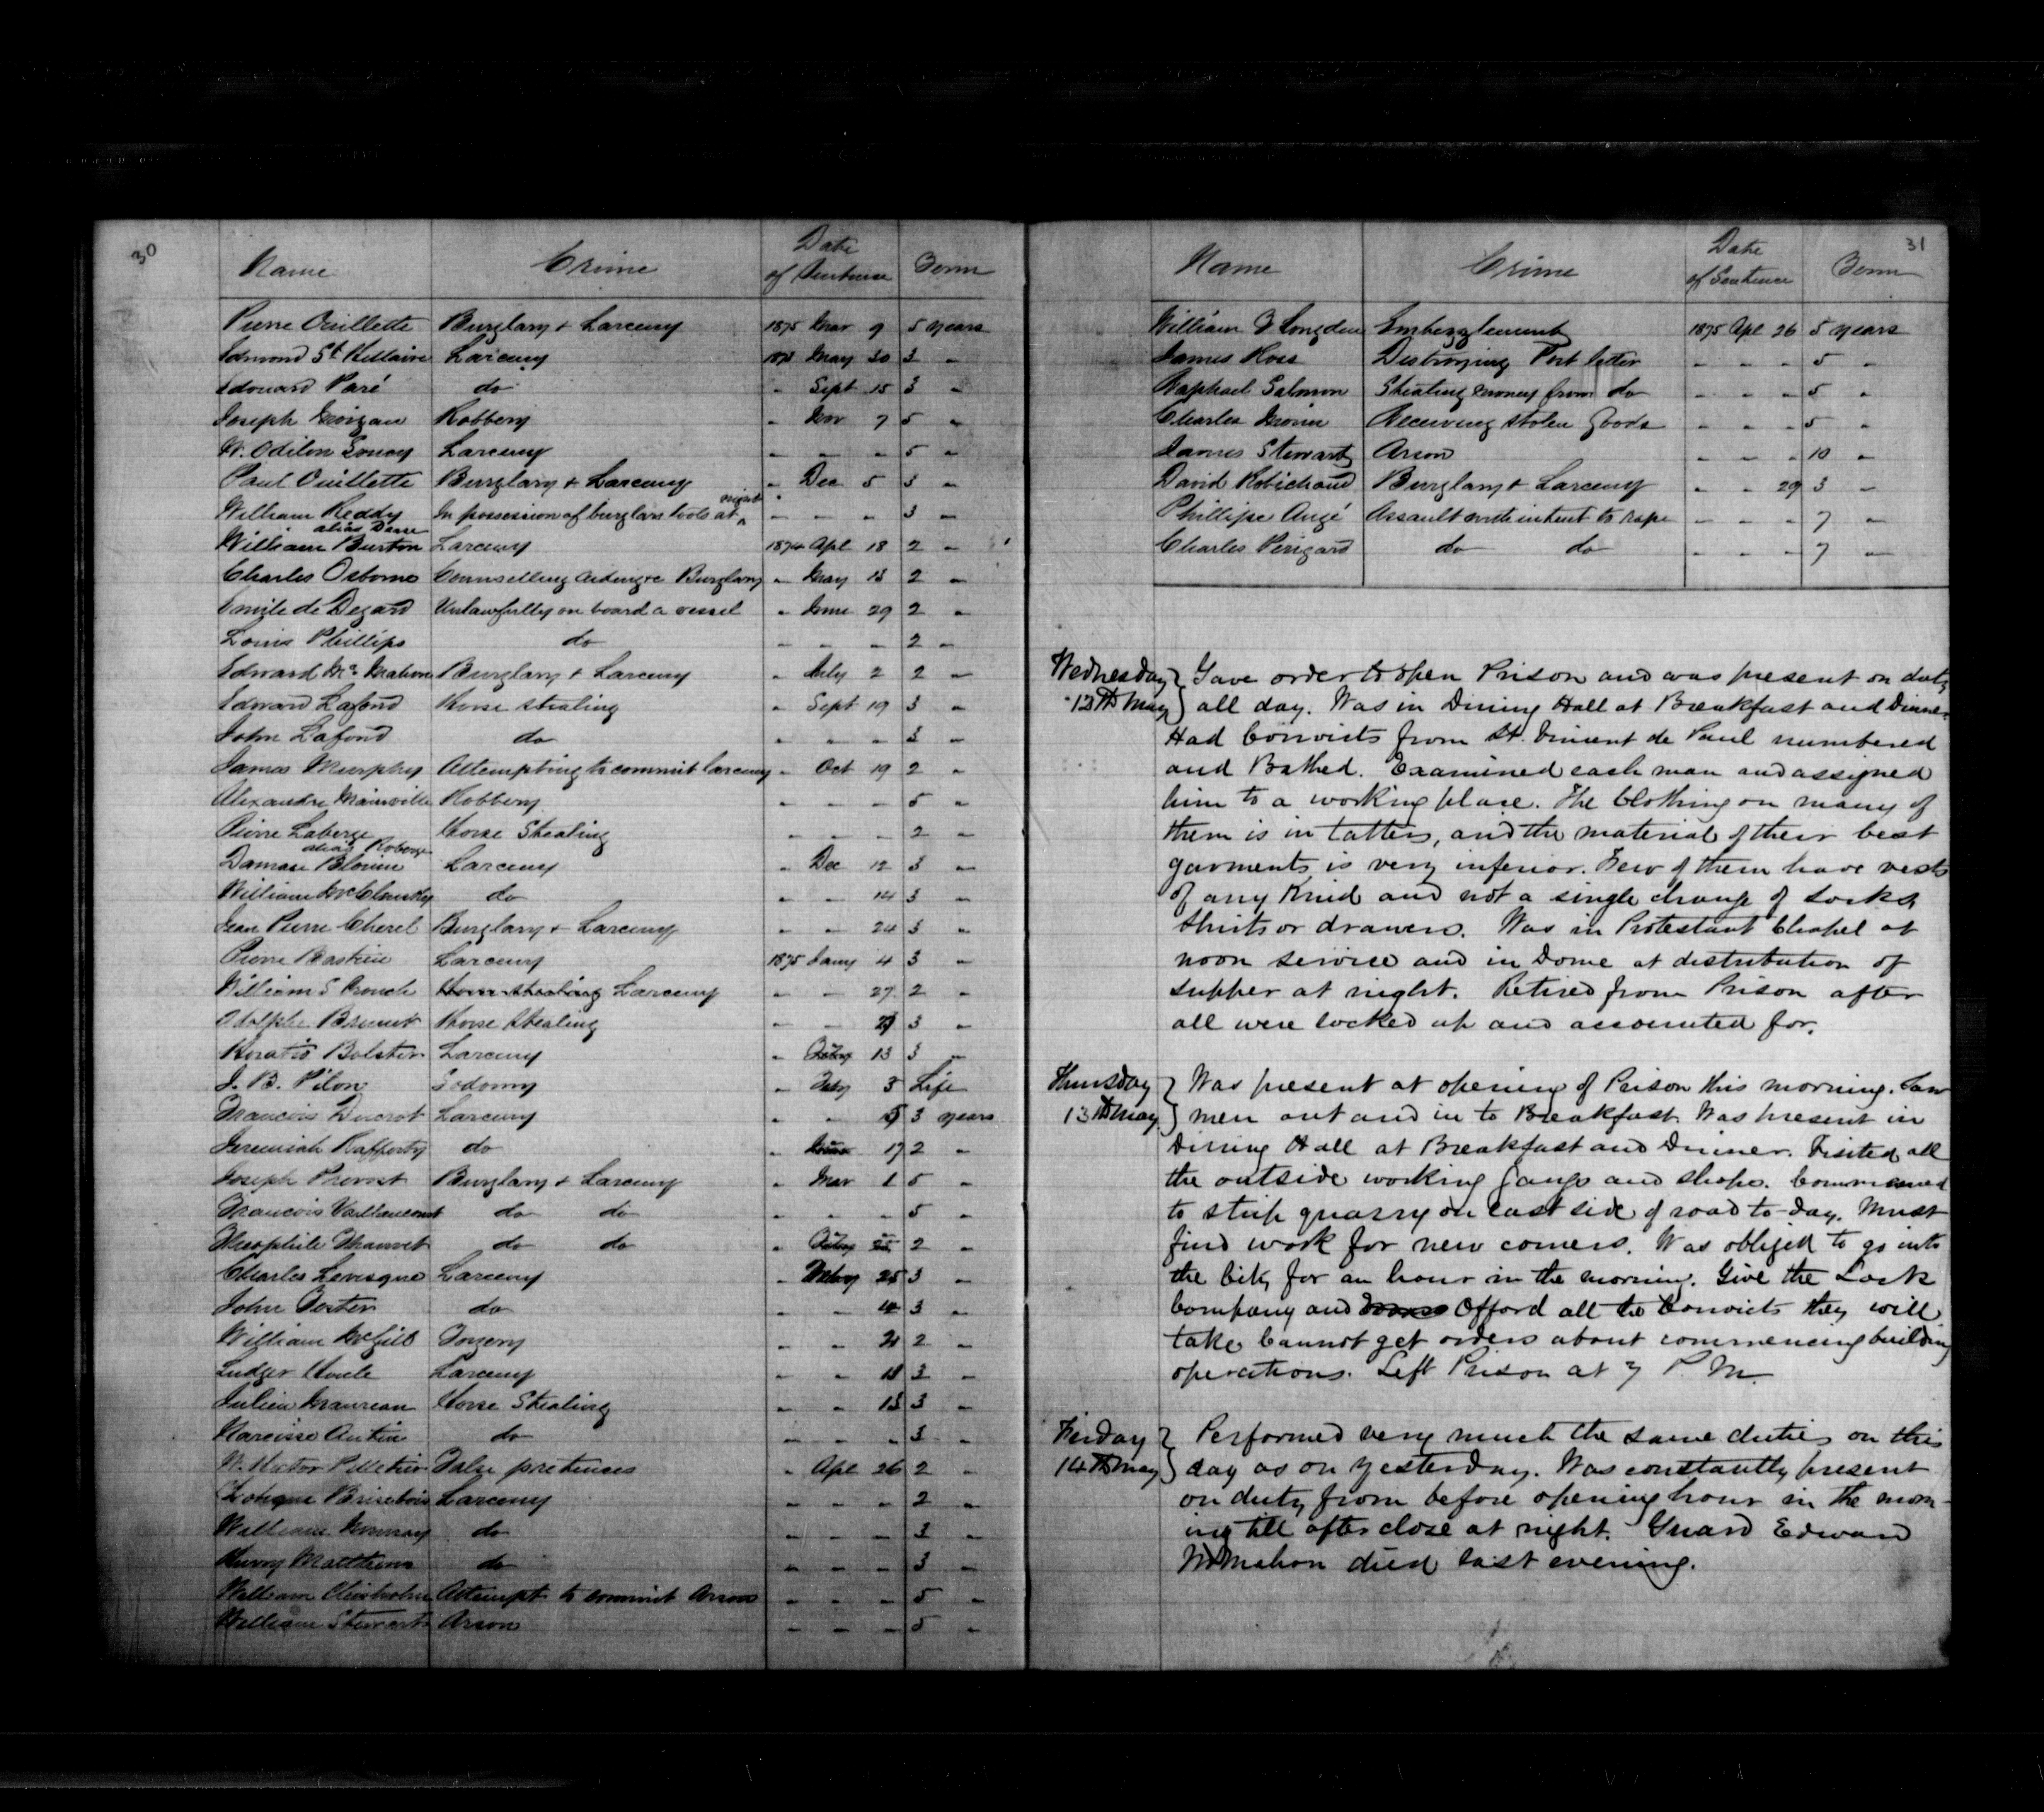 30
Name Crime Date of Sentence Term
Pierre Ouillette Burglary & Larceny 1875 Mar 9 5 years
Edmond St. Hillaire Larceny 1873 May 30 3 "
Edouard Paré do " Sept 15 3 "
Joseph Morgan Robbery " Nov 7 5 "
W. Odilon Larceny " " " 5 "
Paul Ouillette Burglary & Larceny " Dec 5 3 "
William Reddy In possession of burglars tools at night " " " 3 "
alias Dene
William Burton Larceny 1874 Apl 18 2 "
Charles Osborne Counselling aiding &c Burglary " May 13 2 "
Emile de Degard Unlawfully on board a vessel " June 29 2 "
Louis Phillips do " " " 2 "
Edward McMahon Burglary & Larceny " July 2 2 "
Edward Lafond Horse stealing " Sept 19 3 "
John Lafond do " " " 3 "
James Murphy Attempting to commit larceny " Oct 19 2 "
Alexandre Mainville Robbery " " " 5 "
Pierre Laberge Horse Stealing " " " 2 "
alias Roberge
Damase Blouin Larceny " Dec 12 3 "
William McCluskey do " " 14 3 "
Jean Pierre Cherel Burglary & Larceny " " 24 3 "
Pierre Bastien Larceny 1875 Jany 4 3 "
William S Crouch Horse stealing Larceny " " 27 2 "
Adolphe Brunet Horse Stealing " " 3 "
Horatio Bolster Larceny " Feby 13 3 "
J. B. Pilon Sodomy " Feby 3 Life
Francois Ducrot Larceny " " 5 3 years
Jeremiah Rafferty do " 17 2 "
Joseph Prevost Burglary & Larceny " Mar 1 5 "
Francois Vaillancourt do do " " " 5 "
Theophile do do " Feby 25 2 "
Charles Levesque Larceny " 25 3 "
John Foster do " " 3 "
William McGill Forgery " " 2 "
Ludger Houle Larceny " " 3 "
Julien Maureau Horse Stealing " " 13 3 "
Narcisse Autin do " " " 3 "
W. Pelletier False pretences " Apl 26 2 "
Brisebois Larceny " " " 2 "
William Murray do " " " 3 "
Henry Matthews do " " " 3 "
William Chisholm Attempt to commit Arson " " " 5 "
William Stewart Arson " " " 5 "
31
Name Crime Date of Sentence Term
William Longden Embezzlement 1875 Apl 26 5 years
James Ross Destroying Post letter " " " 5 "
Raphael Salomon Stealing money from do " " " 5 "
Charles Morin Receiving stolen goods " " " 5 "
James Stewart Arson " " " 10 "
David Robichaud Burglary & Larceny " " 29 3 "
Phillipe Augé Assault with intent to rape " " " 7 "
Charles Perigard do do " " " 7 "
Wednesday 12th May } Gave order to open Prison and was present on duty
all day. Was in Dining Hall at Breakfast and Dinner.
Had Convicts from St. Vincent de Paul numbered
and Bathed. Examined each man and assigned
him to a working place. The Clothing on many of
them is in tatters, and the material of their best
garments is very inferior. Few of them have vests
of any kind and not a single change of socks,
shirts or drawers. Was in Protestant Chapel at
noon service and in Dome at distribution of
supper at night. Retired from Prison after
all were locked up and accounted for.
Thursday 13th May } Was present at opening of Prison this morning. Saw
men out and in to Breakfast. Was present in
Dining Hall at Breakfast and Dinner. Visited all
the outside working gangs and shops. Commenced
to strip quarry on east side of road to-day. Must
find work for new comers. Was obliged to go into
the City for an hour in the morning. Give the Lock
Company and Offord all the Convicts they will
take Cannot get orders about commencing building
operations. Left Prison at 7 P. M.
Friday 14th May } Performed very much the same duties on this
day as on yesterday. Was constantly present
on duty from before opening hour in the morn-
ing till after close at night. Guard Edward
McMahon died last evening.